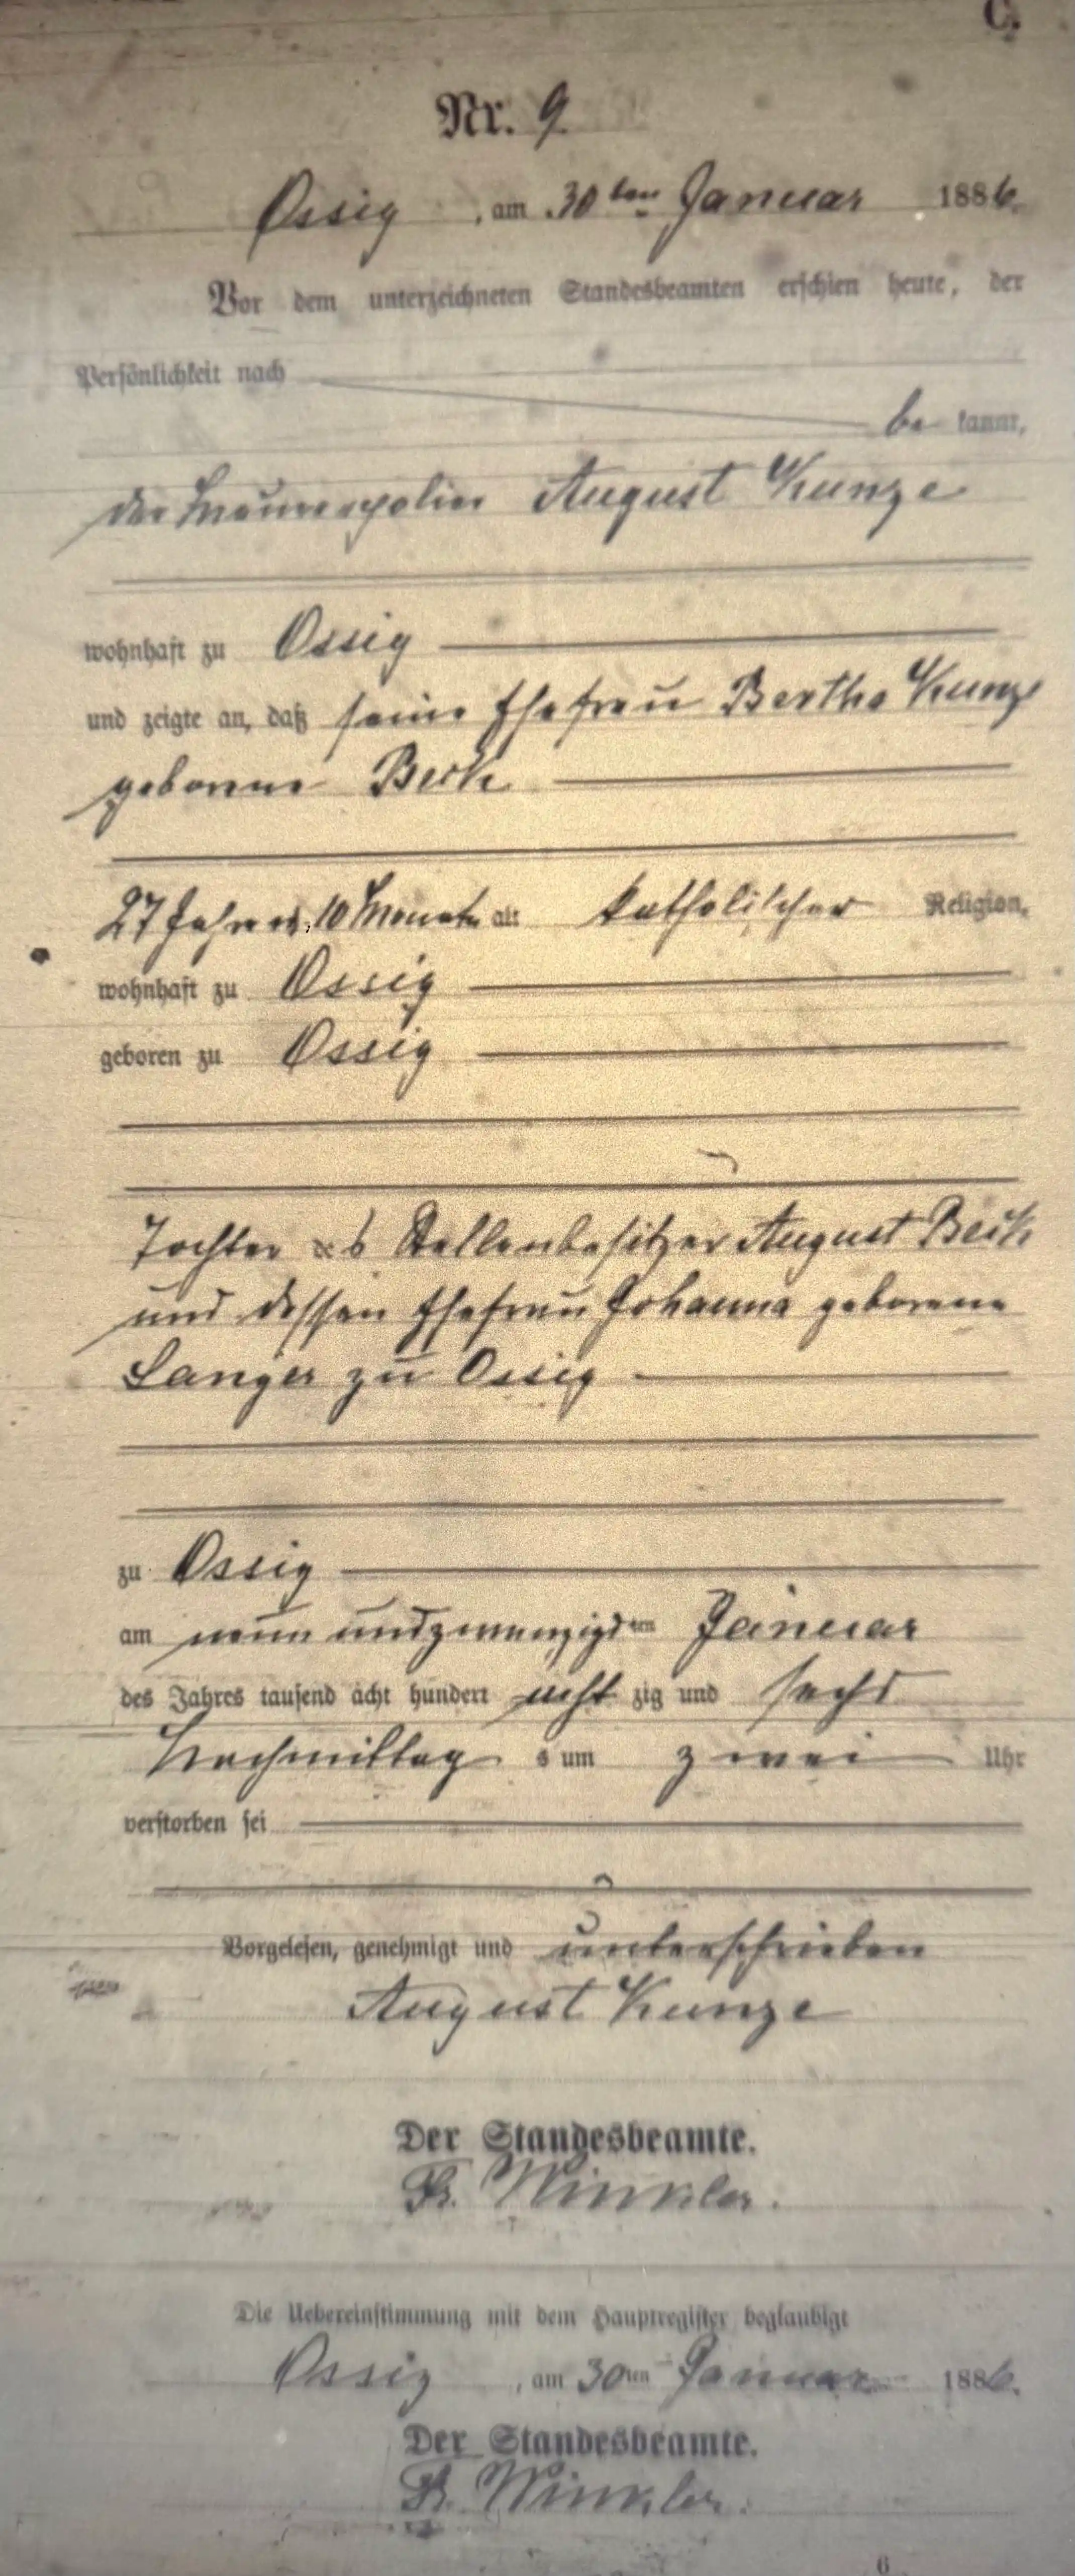 C.
Nr. 9.
Ossig, am 30ten Januar 1886.
Vor dem unterzeichneten Standesbeamten erschien heute, der
Persönlichkeit nach
be kannt,
der Maurerpolier August Kunze
wohnhaft zu Ossig
und zeigte an, daß seine Ehefrau Bertha Kunze
geborene Beck
27 Jahre, 10 Monate alt katholischer Religion,
wohnhaft zu Ossig
geboren zu Ossig
Tochter des Stellenbesitzer August Beck
und dessen Ehefrau Johanna geborene
Langer zu Ossig
zu Ossig
am neun und zwanzigsten Januar
des Jahres tausend acht hundert acht zig und sechs
Nachmittag s um zwei Uhr
verstorben sei
Vorgelesen, genehmigt und unterschrieben
August Kunze
Der Standesbeamte.
Fr. Winkler.
Die Uebereinstimmung mit dem Hauptregister beglaubigt
Ossig, am 30ten Januar 1886.
Der Standesbeamte.
Fr. Winkler.
6